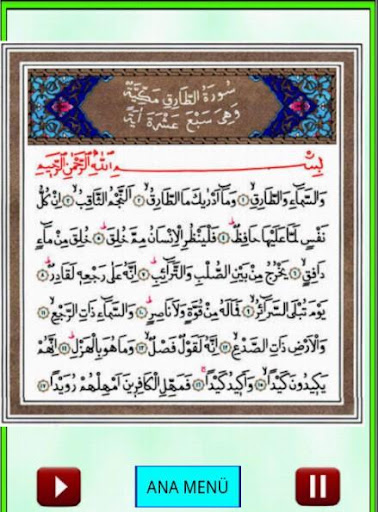 سُورَةُ الطَّارِقِ مَكِّيَّةٌ
وَهِيَ سَبْعَ عَشْرَةَ اٰيَةً
بِسْــــــمِ اللّٰهِ الرَّحْمٰنِ الرَّحِيمِ
وَالسَّمَٓاءِ وَالطَّارِقِۙ ﴿١﴾ وَمَٓا اَدْرٰيكَ مَا الطَّارِقُۙ ﴿٢﴾ اَلنَّجْمُ الثَّاقِبُۙ ﴿٣﴾ اِنْ كُلُّ
نَفْسٍ لَمَّا عَلَيْهَا حَافِظٌۜ ﴿٤﴾ فَلْيَنْظُرِ الْاِنْسَانُ مِمَّ خُلِقَۜ ﴿٥﴾ خُلِقَ مِنْ مَٓاءٍ
دَافِقٍۙ ﴿٦﴾ يَخْرُجُ مِنْ بَيْنِ الصُّلْبِ وَالتَّرَٓائِبِۜ ﴿٧﴾ اِنَّهُ عَلٰى رَجْعِه۪ لَقَادِرٌۜ ﴿٨﴾
يَوْمَ تُبْلَى السَّرَٓائِرُۙ ﴿٩﴾ فَمَا لَهُ مِنْ قُوَّةٍ وَلَا نَاصِرٍۜ ﴿١٠﴾ وَالسَّمَٓاءِ ذَاتِ الرَّجْعِۙ ﴿١١﴾
وَالْاَرْضِ ذَاتِ الصَّدْعِۙ ﴿١٢﴾ اِنَّهُ لَقَوْلٌ فَصْلٌۙ ﴿١٣﴾ وَمَا هُوَ بِالْهَزْلِۜ ﴿١٤﴾ اِنَّهُمْ
يَك۪يدُونَ كَيْدًاۙ ﴿١٥﴾ وَاَك۪يدُ كَيْدًاۚ ﴿١٦﴾ فَمَهِّلِ الْكَافِر۪ينَ اَمْهِلْهُمْ رُوَيْدًا ﴿١٧﴾
ANA MENÜ